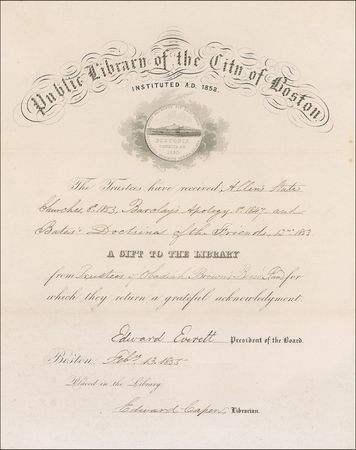 Public Library of the City of Boston
INSTITUTED A.D. 1852.
BOSTONIA
The Trustees have received, Allen's State
Churches, 8º 1853, Barclay's Apology 8º 1847 and
Bates' Doctrine of the Friends, 12mo 1853
A GIFT TO THE LIBRARY
from Trustees of Obadiah Brown's Fund for
which they return a grateful acknowledgment.
Edward Everett President of the Board.
Boston, Feby. 13. 1855
Placed in the Library
Edward Capen, Librarian.